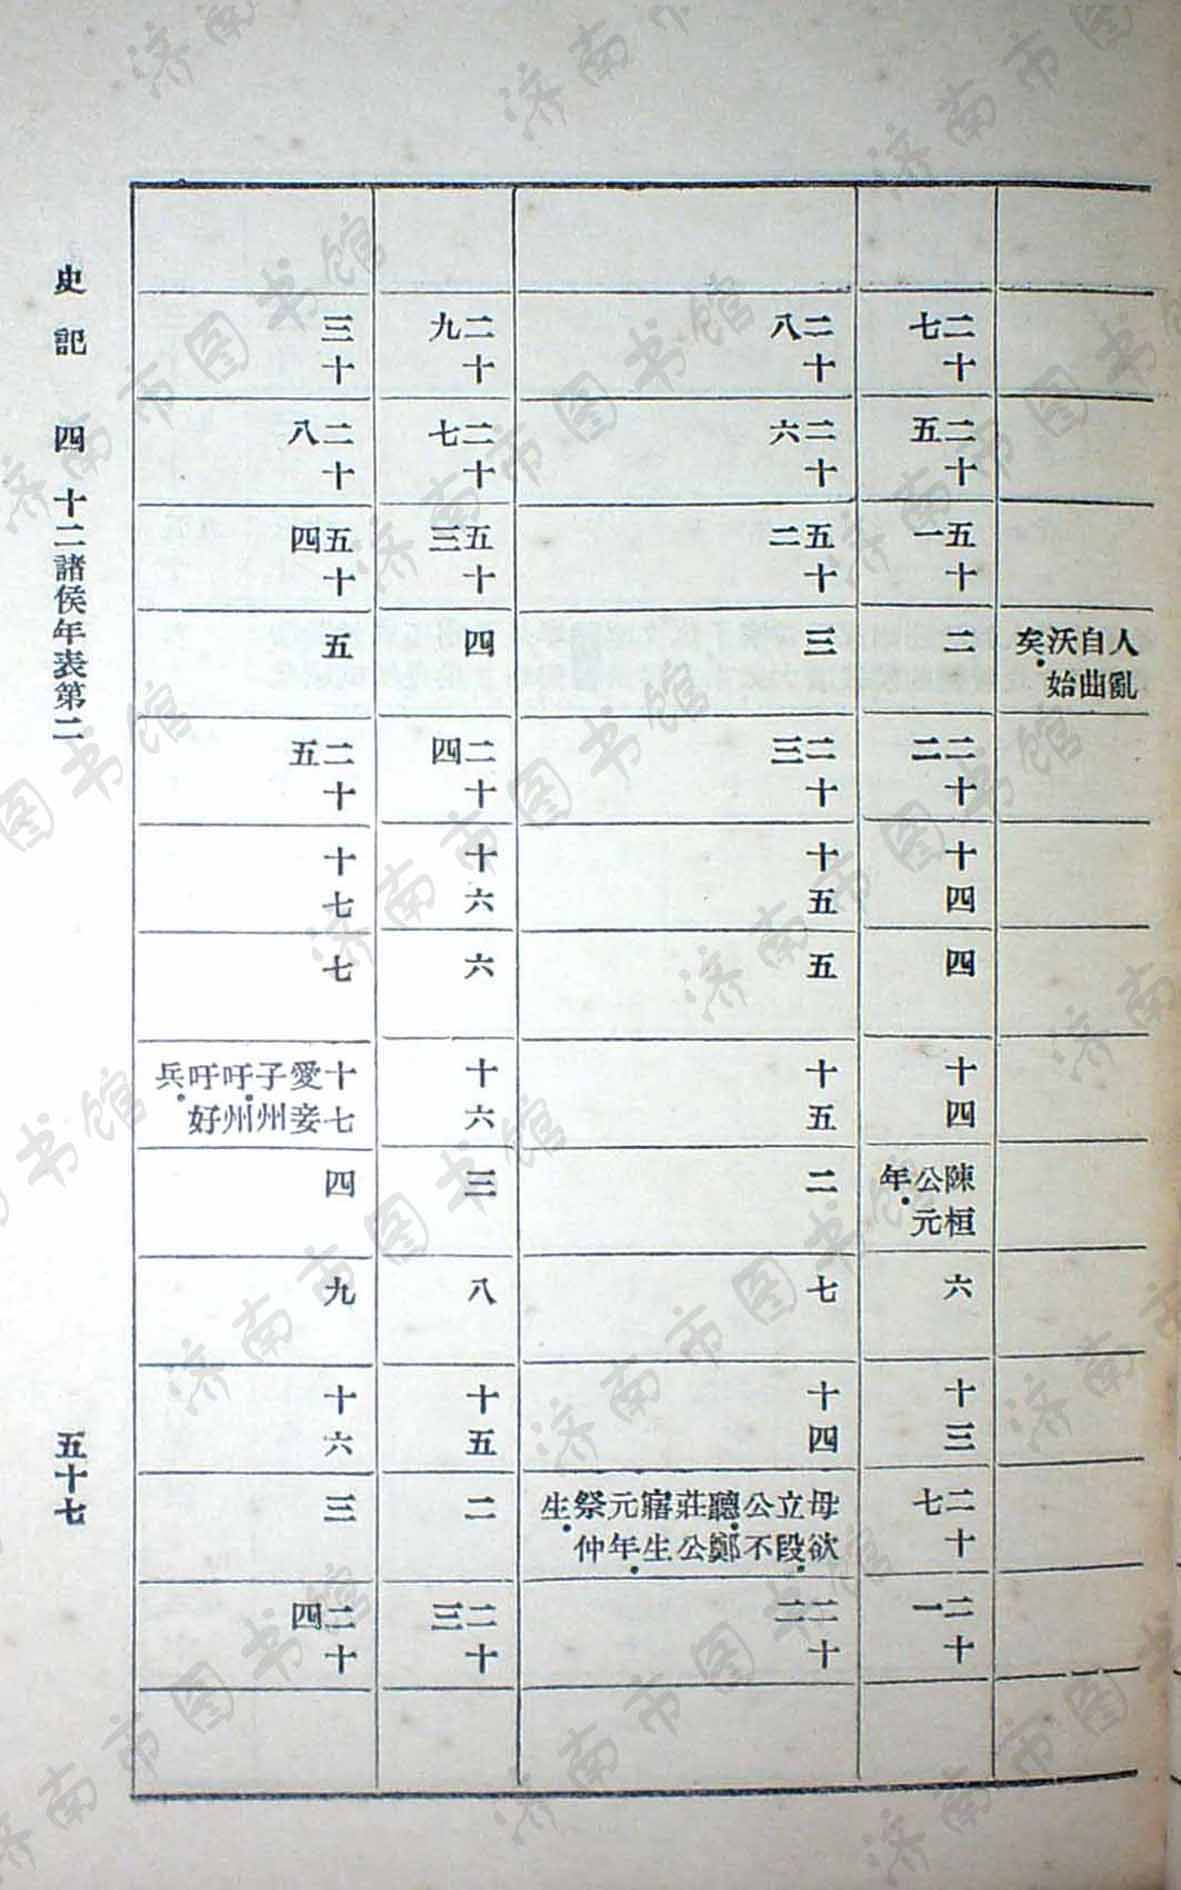 人亂自曲沃始矣.
二十七
二十五
五十一
二
二十二
十四
四
十四
陳桓公元年.
六
十三
二十七
二十一
二十八
二十六
五十二
三
二十三
十五
五
十五
二
七
十四
母欲立段.公不聽.鄭莊公寤生元年.祭仲生.
二十二
二十九
二十七
五十三
四
二十四
十六
六
十六
三
八
十五
二
二十三
三十
二十八
五十四
五
二十五
十七
七
十七愛妾子州吁.州吁好兵.
四
九
十六
三
二十四
史記 四 十二諸侯年表第二
五十七
济南市图书馆